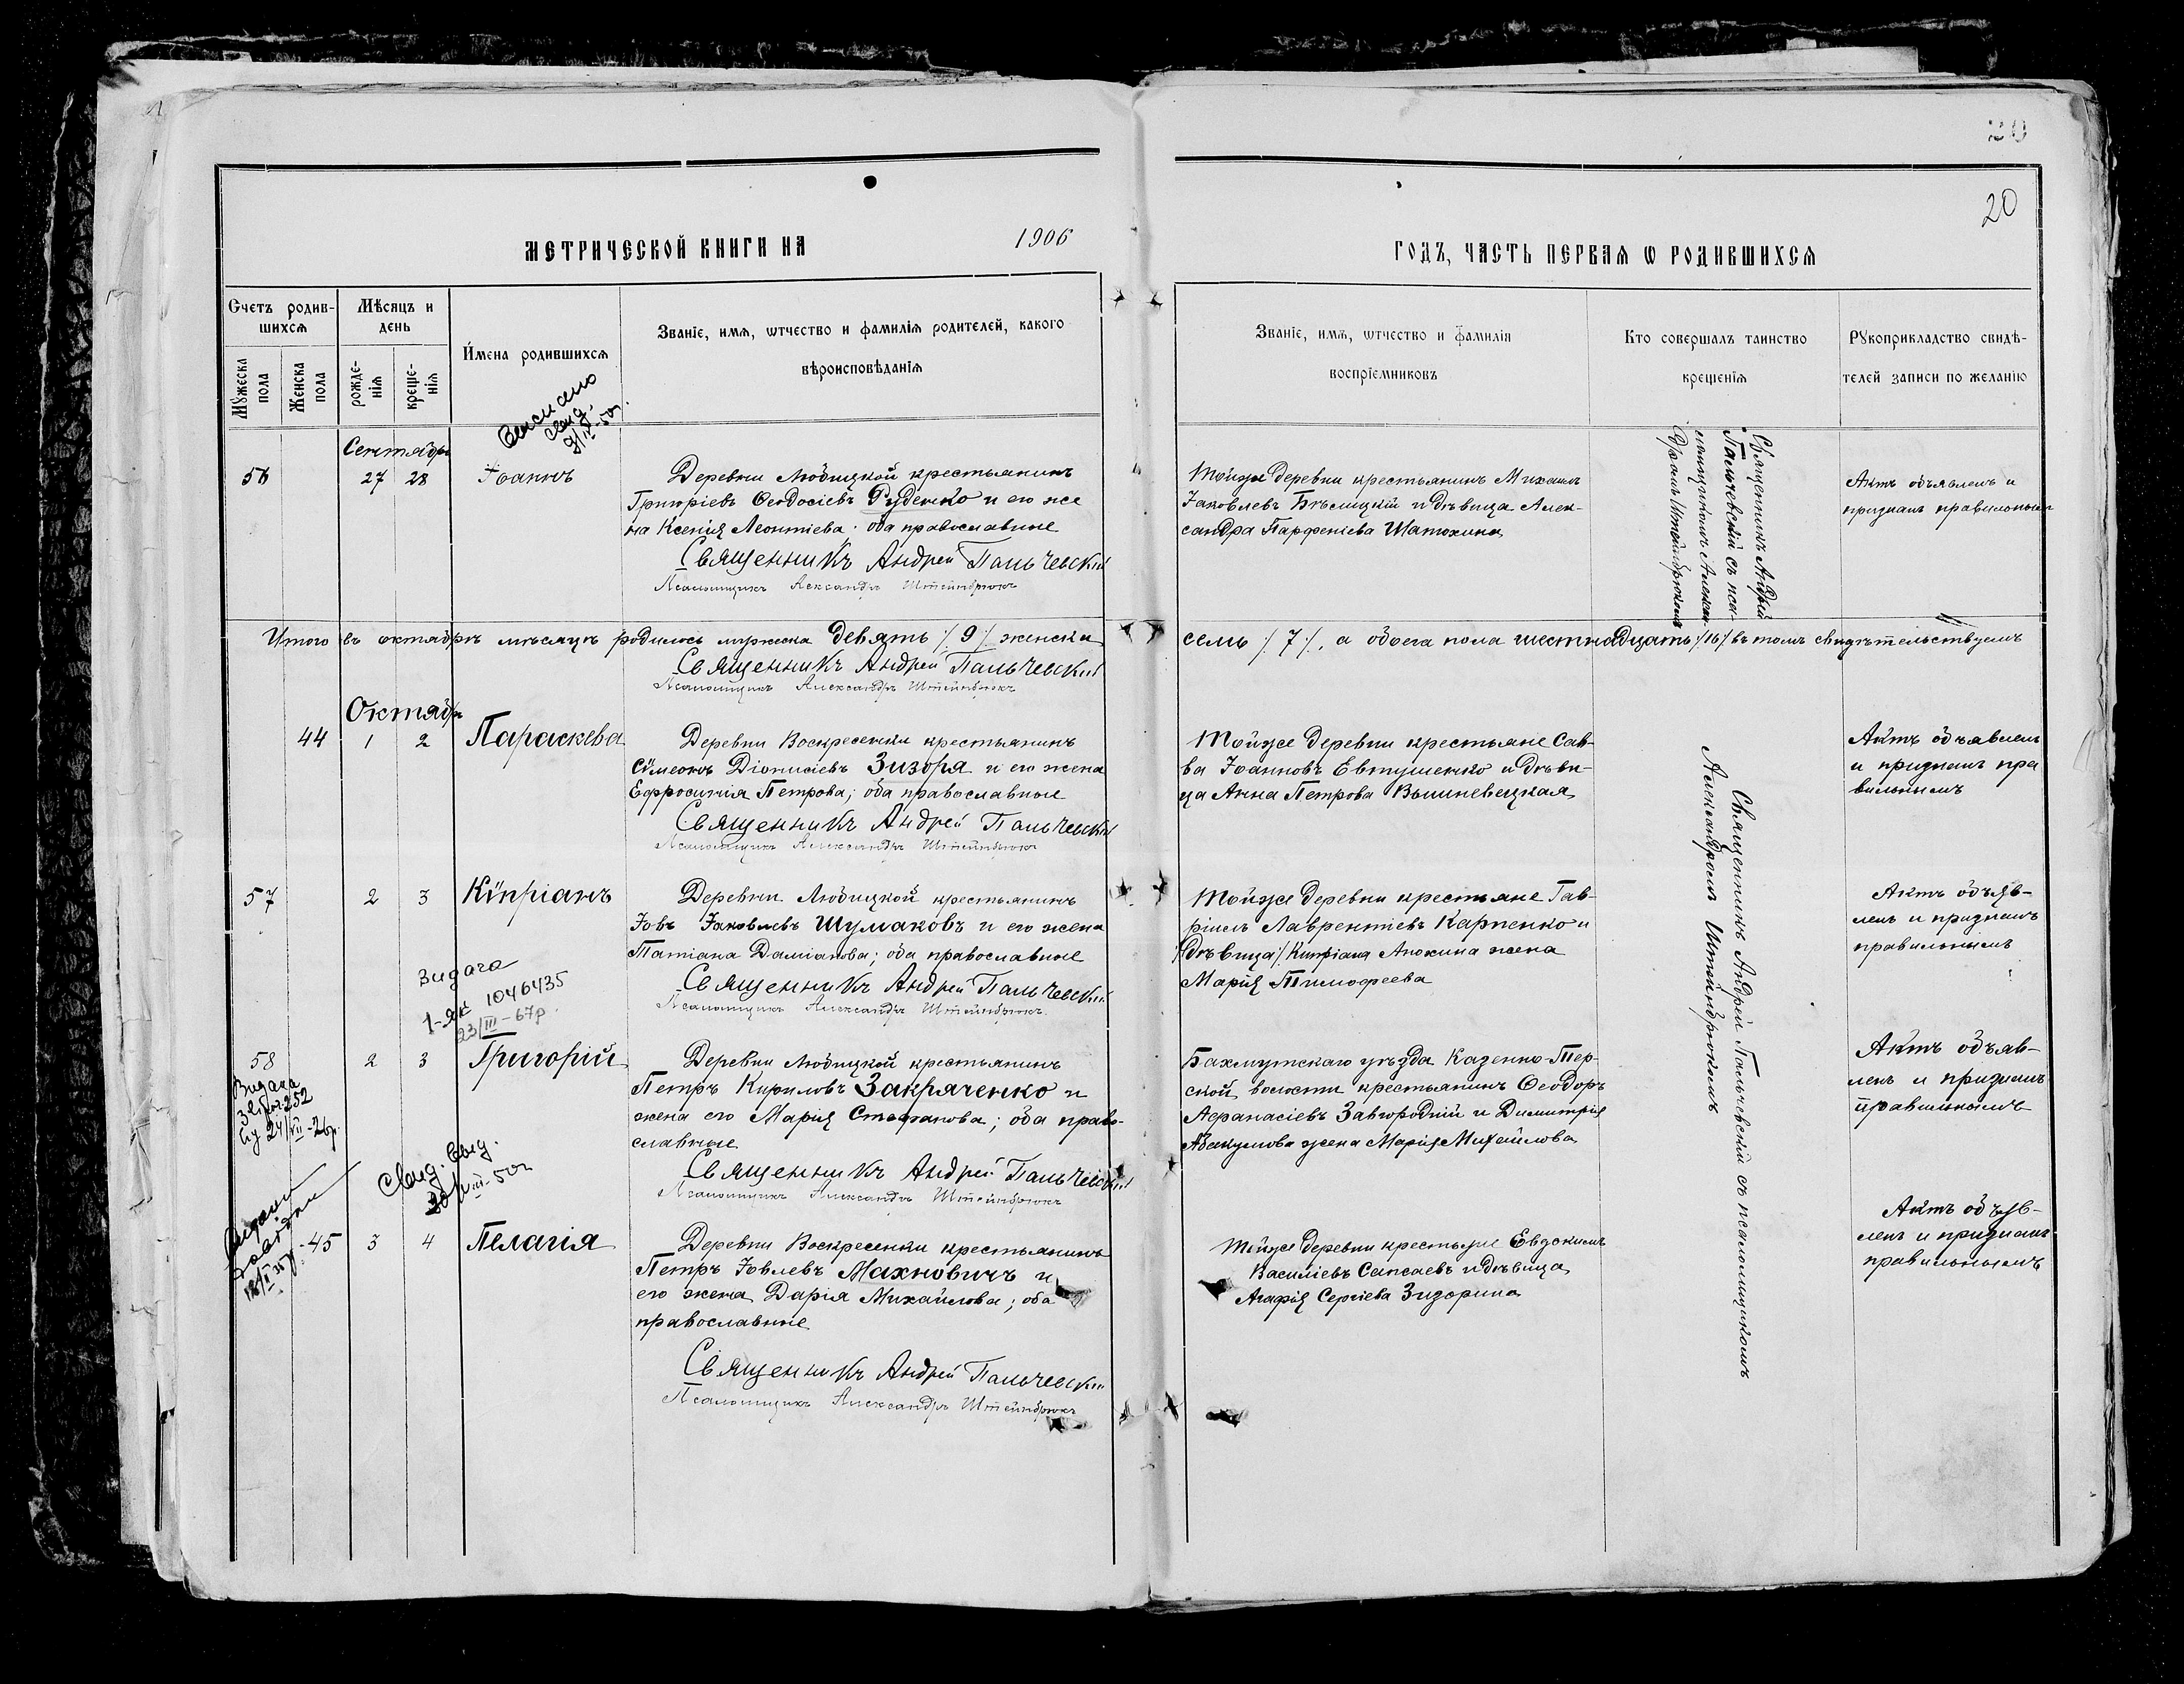 20
20
МЕТРИЧЕСКОЙ КНИГИ НА 1906
ГОДЪ, ЧАСТЬ ПЕРВАЯ Ѡ РОДИВШИХСЯ
Счетъ родив-
шихся
Мѣсяцъ и
день
Мужеска
пола
Женска
пола
рожде-
нія
креще-
нія
Имена родившихся
Званіе, имя, ѡтчество и фамилія родителей, какого
вѣроисповѣданія
Званіе, имя, ѡтчество и фамилія
воспріемниковъ
Кто совершалъ таинство
крещенія
Рукоприкладство свидѣ-
телей записи по желанію
Сентябрь
56 27 28 Іоаннъ
Деревни Любицкой крестьянинъ
Григоріевъ Ѳеодосіевъ Руденко и его же
на Ксенія Леонтіева; оба православные
Священникъ Андрей Пальчевскій
Псаломщикъ Александръ Штейнбрюкъ
Тойже деревни крестьянинъ Михаилъ
Іаковлевъ Бѣлицкій и дѣвица Алек-
сандра Парфеніева Шатохина
Священникъ Андрей
Пальчевскій съ пса-
ломщикомъ Алексан-
дромъ Штейнбрюкомъ
Актъ объявленъ и
признанъ правильнымъ
Итого въ октябрѣ мѣсяцѣ родилось мужеска девять /9/ женска
семь /7/, а обоега пола шестнадцать /16/ въ томъ свидѣтельствуемъ
Священникъ Андрей Пальчевскій
Псаломщикъ Александръ Штейнбрюкъ
Октябрь
44 1 2 Параскева
Деревни Воскресенки крестьянинъ
Сѵмеонъ Діонисіевъ Зизоря и его жена
Ефросинія Петрова; оба православные
Священникъ Андрей Пальчевскій
Псаломщикъ Александръ Штейнбрюкъ
Тойже деревни крестьяне Сав-
ва Іоанновъ Евтушенко и дѣви-
ца Анна Петрова Вышневецкая
Актъ объявленъ
и признанъ пра
вильнымъ
Священникъ Андрей Пальчевскій съ псаломщикомъ
Александромъ Штейнбрюкомъ
57 2 3 Кѵпріанъ
Деревни Любицкой крестьянинъ
Іовъ Іаковлевъ Шумаковъ и его жена
Татіана Даміанова; оба православные
Священникъ Андрей Пальчевскій
Псаломщикъ Александръ Штейнбрюкъ
Тойже деревни крестьяне Гав-
ріилъ Лаврентіевъ Карпенко и
/дѣвица/ Кипріана Анохина жена
Марія Тимофеева
Актъ объяв-
ленъ и признанъ
правильнымъ
Видача
1046435
23/III-67р.
58 2 3 Григорій
Деревни Любицкой крестьянинъ
Петръ Кириловъ Закряченко и
жена его Марія Стефанова; оба право-
славные
Священникъ Андрей Пальчевскій
Псаломщикъ Александръ Штейнбрюкъ
Бахмутскаго уѣзда Казенно-Тор-
ской волости крестьянинъ Ѳеодоръ
Афанасіевъ Завгородній и Димитрія
Абакумова жена Марія Михайлова
Актъ объяв-
ленъ и признанъ
правильнымъ
Видача
-45 3 4 Пелагія
Деревни Воскресенки крестьянинъ
Петръ Іовлевъ Махновичъ и
его жена Дарія Михайлова; оба
православные
Священникъ Андрей Пальчевскій
Псаломщикъ Александръ Штейнбрюкъ
Тойже деревни крестьяне Евдокимъ
Василіевъ Сапсаевъ и дѣвица
Агафія Сергіева Зизорина
Актъ объяв-
ленъ и признанъ
правильнымъ